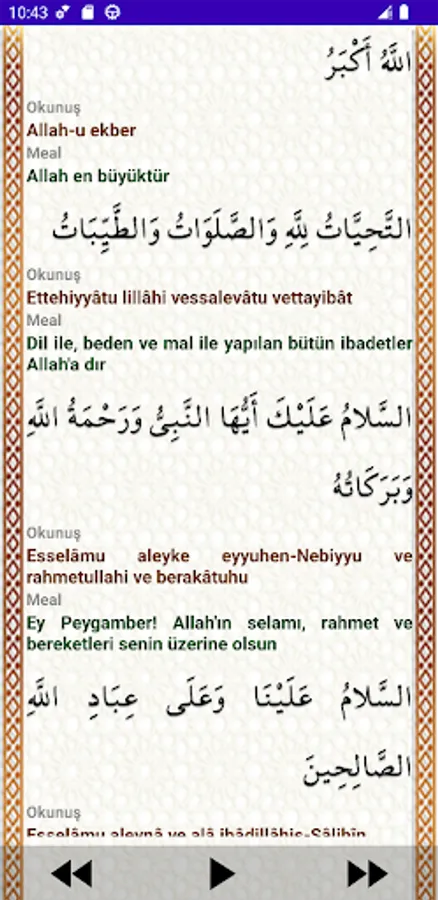 10:43
اللَّهُ أَكْبَرُ
Okunuş
Allah-u ekber
Meal
Allah en büyüktür
التَّحِيَّاتُ لِلَّهِ وَالصَّلَوَاتُ وَالطَّيِّبَاتُ
Okunuş
Ettehiyyâtu lillâhi vessalevâtu vettayibât
Meal
Dil ile, beden ve mal ile yapılan bütün ibadetler
Allah'a dır
السَّلامُ عَلَيْكَ أَيُّهَا النَّبِىُّ وَرَحْمَةُ اللَّهِ
وَبَرَكَاتُهُ
Okunuş
Esselâmu aleyke eyyuhen-Nebiyyu ve
rahmetullahi ve berakâtuhu
Meal
Ey Peygamber! Allah'ın selamı, rahmet ve
bereketleri senin üzerine olsun
السَّلامُ عَلَيْنَا وَعَلَى عِبَادِ اللَّهِ
الصَّالِحِينَ
Okunuş
Esselâmu aleynâ ve alâ ibâdillâhis-Sâlihîn